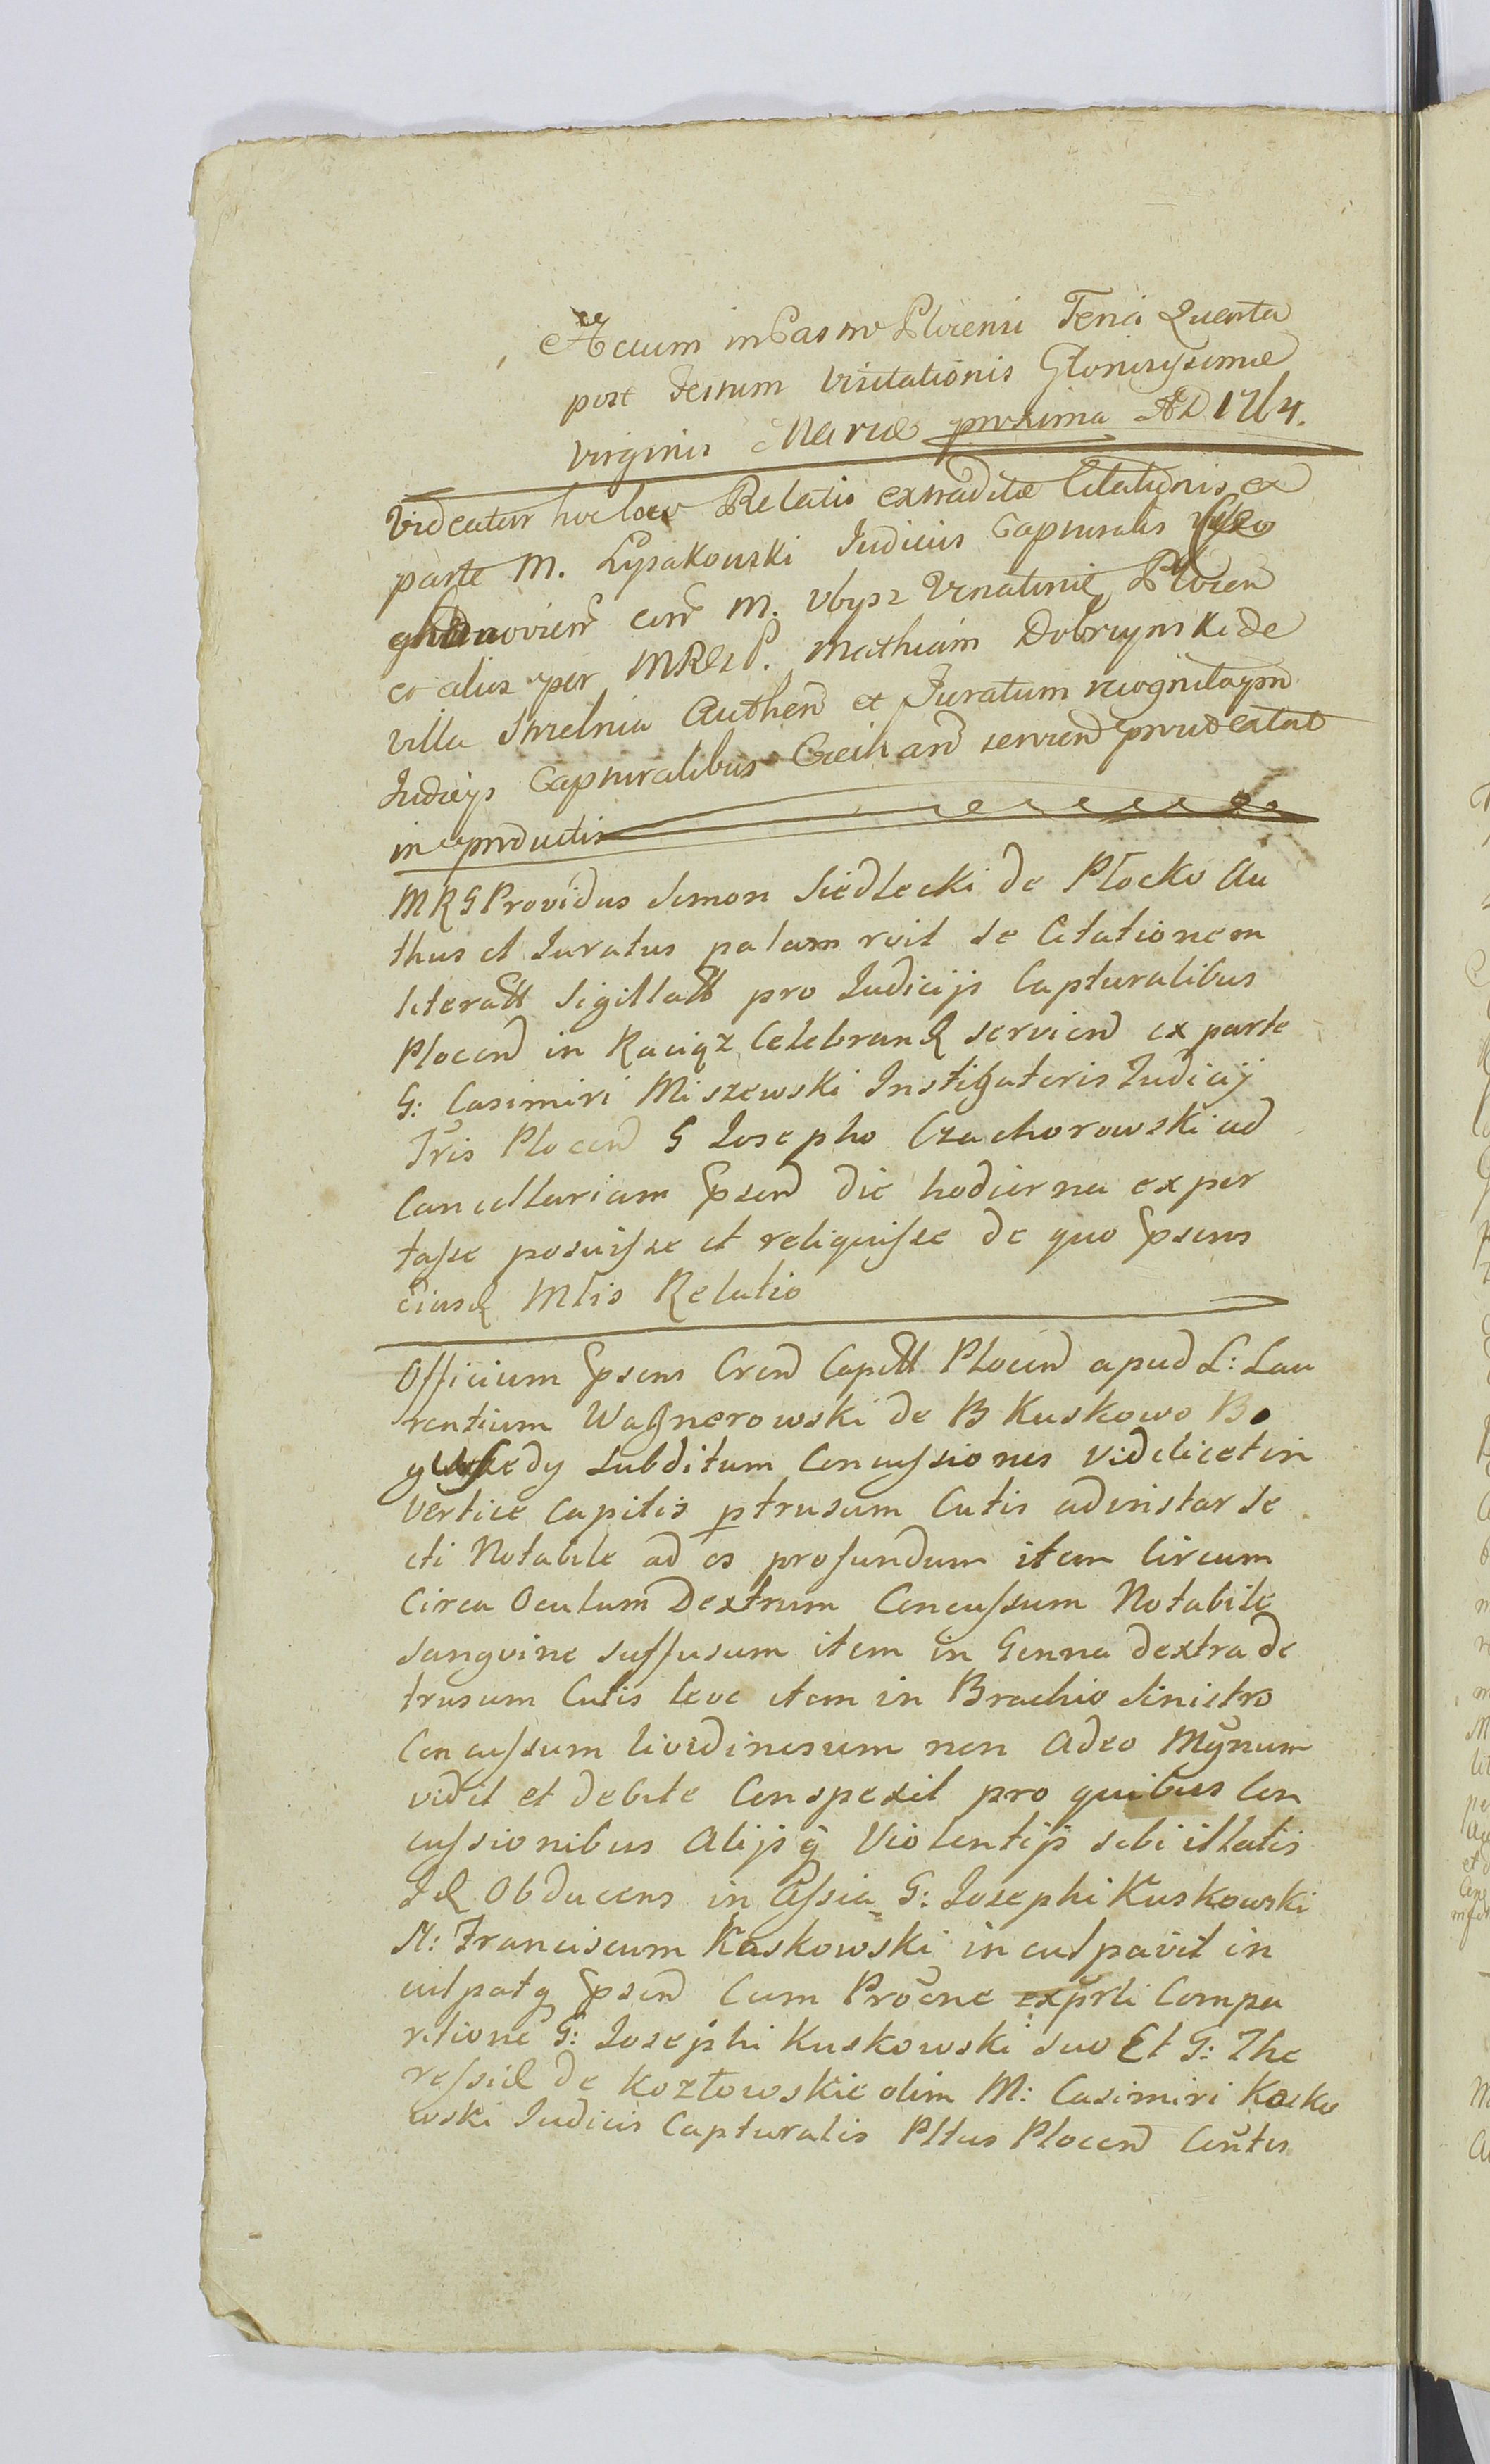 Actum in Castro Plocensi Feria Quarta
post Festum Visitationis Gloriosissimæ
Virginis Mariæ proxima AD 1764.
Videatur hoc loco Relatio extraditæ Citationis ex
parte M. Łysakowski Judicis Capturalis
M. Ubysz Venatorie Plocen
et alius per MRGl P. Mathiam Dobrzynski de
villa Strzelnia Authen et Juratum recognita
Judicijs Capturalibus servien prout extat
in productis
MRG Providus Simon Siedlecki de Płocko Au
thus et Juratus palam rvit se Citationem
literatt Sigillatt pro Judicijs Capturalibus
Plocen in Raciąz Celebran servien ex parte
G: Casimiri Miszewski Instigatoris Judicij
Tris Plocen G Josepho Czachorowski ad
Cancellariam psen die hodierna expor
tasse posuisse et reliquisse de quo psens
eiusd Mtis Relatio
Officium psens Cren Capitt Plocen apud L: Lau
rentium Wagnerowski de B Kuskowo Bo
subditum Concussiones videlicet in
vertice capitis ptrusum Cutis ad instar se
cti Notabile ad os profundum item Circum
Circa Oculum Dextrum Concussum Notabile
sanguine suffusum item in Genna dextra de
trusum Cutis leve item in Brachio sinistro
Concussum livedinosum non adeo Mgnum
vidit et debite Conspexit pro quibus Con
cussionibus Alijsq Violentijs sibi illatis
Id Obducens in Assia G: Josephi Kuskowski
M: Franciscum Kuskowski inculpavit in
culpatq psen Cum Proône exprti Compa
ritione G: Josephi Kuskowski suo Et G: The
ressiæ de Kozłowskie olim M: Casimiri Kosko
wski Judicis Capturalis Pltus Plocen Contis